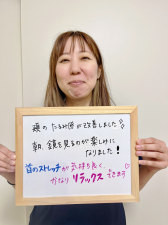 頬のたるみ感が改善しました!!
朝、鏡を見るのが楽しみに
なりました!
首のストレッチが気持ち良く、
かなりリラックス できます